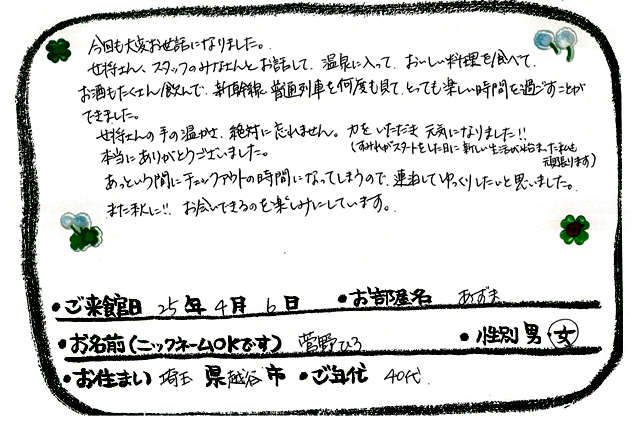 今回も大変お世話になりました。
女将さん、スタッフのみなさんとお話して、温泉に入って、おいしい料理を食べて、
お酒もたくさん飲んで、新幹線、普通列車を何度も見て、とっても楽しい時間を過ごすことが
できました。
女将さんの手の温かさ、絶対に忘れません。力をいただき元気になりました!!
本当にありがとうございました。
(すみれがスタートをした日に新しい生活が始まった私も
頑張ります)
あっという間にチェックアウトの時間になってしまうので、連泊してゆっくりしたいと思いました。
また秋に!! お会いできるのを楽しみにしています。
・ご来館日 25年4月6日 ・お部屋名 あずま
・お名前(ニックネームOKです) 菅野ひろ ・性別 男・女
・お住まい 埼玉県越谷市 ・ご年代 40代